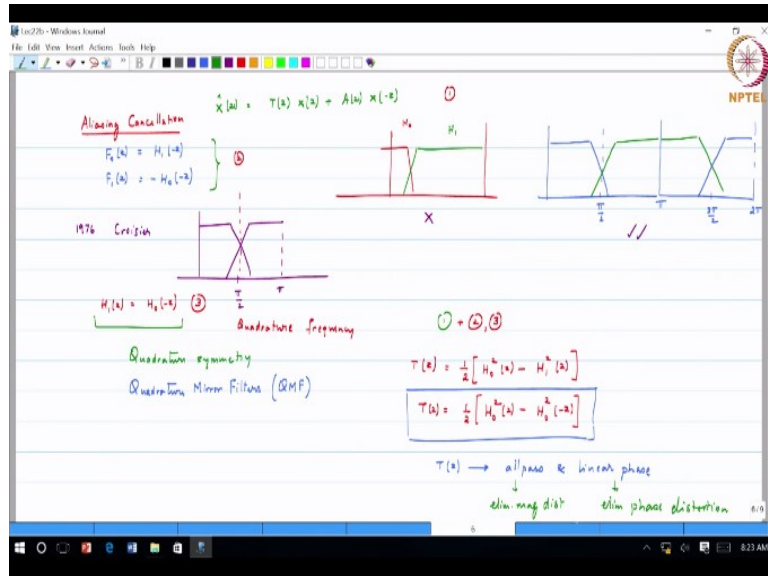 Lec22b - Windows Journal
File Edit View Insert Actions Tools Help
NPTEL
X̂(z) = T(z) X(z) + A(z) X(-z) ①
Aliasing Cancellation
F₀(z) = H₁(-z)
F₁(z) = - H₀(-z)
②
H₀ H₁
X
π/2 π 3π/2 2π
✓✓
1976 Croisier
π/2 π
H₁(z) = H₀(-z) ③
Quadrature frequency
Quadrature symmetry
Quadrature Mirror Filters (QMF)
① + ②, ③
T(z) = 1/2 [H₀²(z) - H₁²(z)]
T(z) = 1/2 [H₀²(z) - H₀²(-z)]
T(z) → allpass & linear phase
elim. mag dist elim phase distortion
6/9
6
8:23 AM